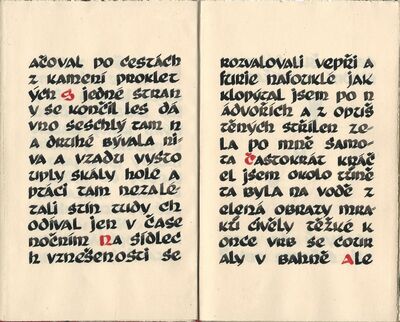 ačoval po cestách
z kamení proklet
ých S jedné stran
y se končil les dá
vno seschlý tam n
a druhé bývala ni
va a vzadu vysto
uply skály holé a
ptáci tam nezalé
tali stín tudy ch
odíval jen v čase
nočním Na sídlec
h vznešenosti se
rozvalovali vepři a
furie nafouklé jak
klopýtal jsem po n
ádvořích a z opuš
těných střílen ze
la po mně samo
ta Častokrát kráč
el jsem okolo tůně
ta byla na vodě z
elená obrazy mra
ků čivěly těžké k
once vrb se cour
aly v bahně Ale